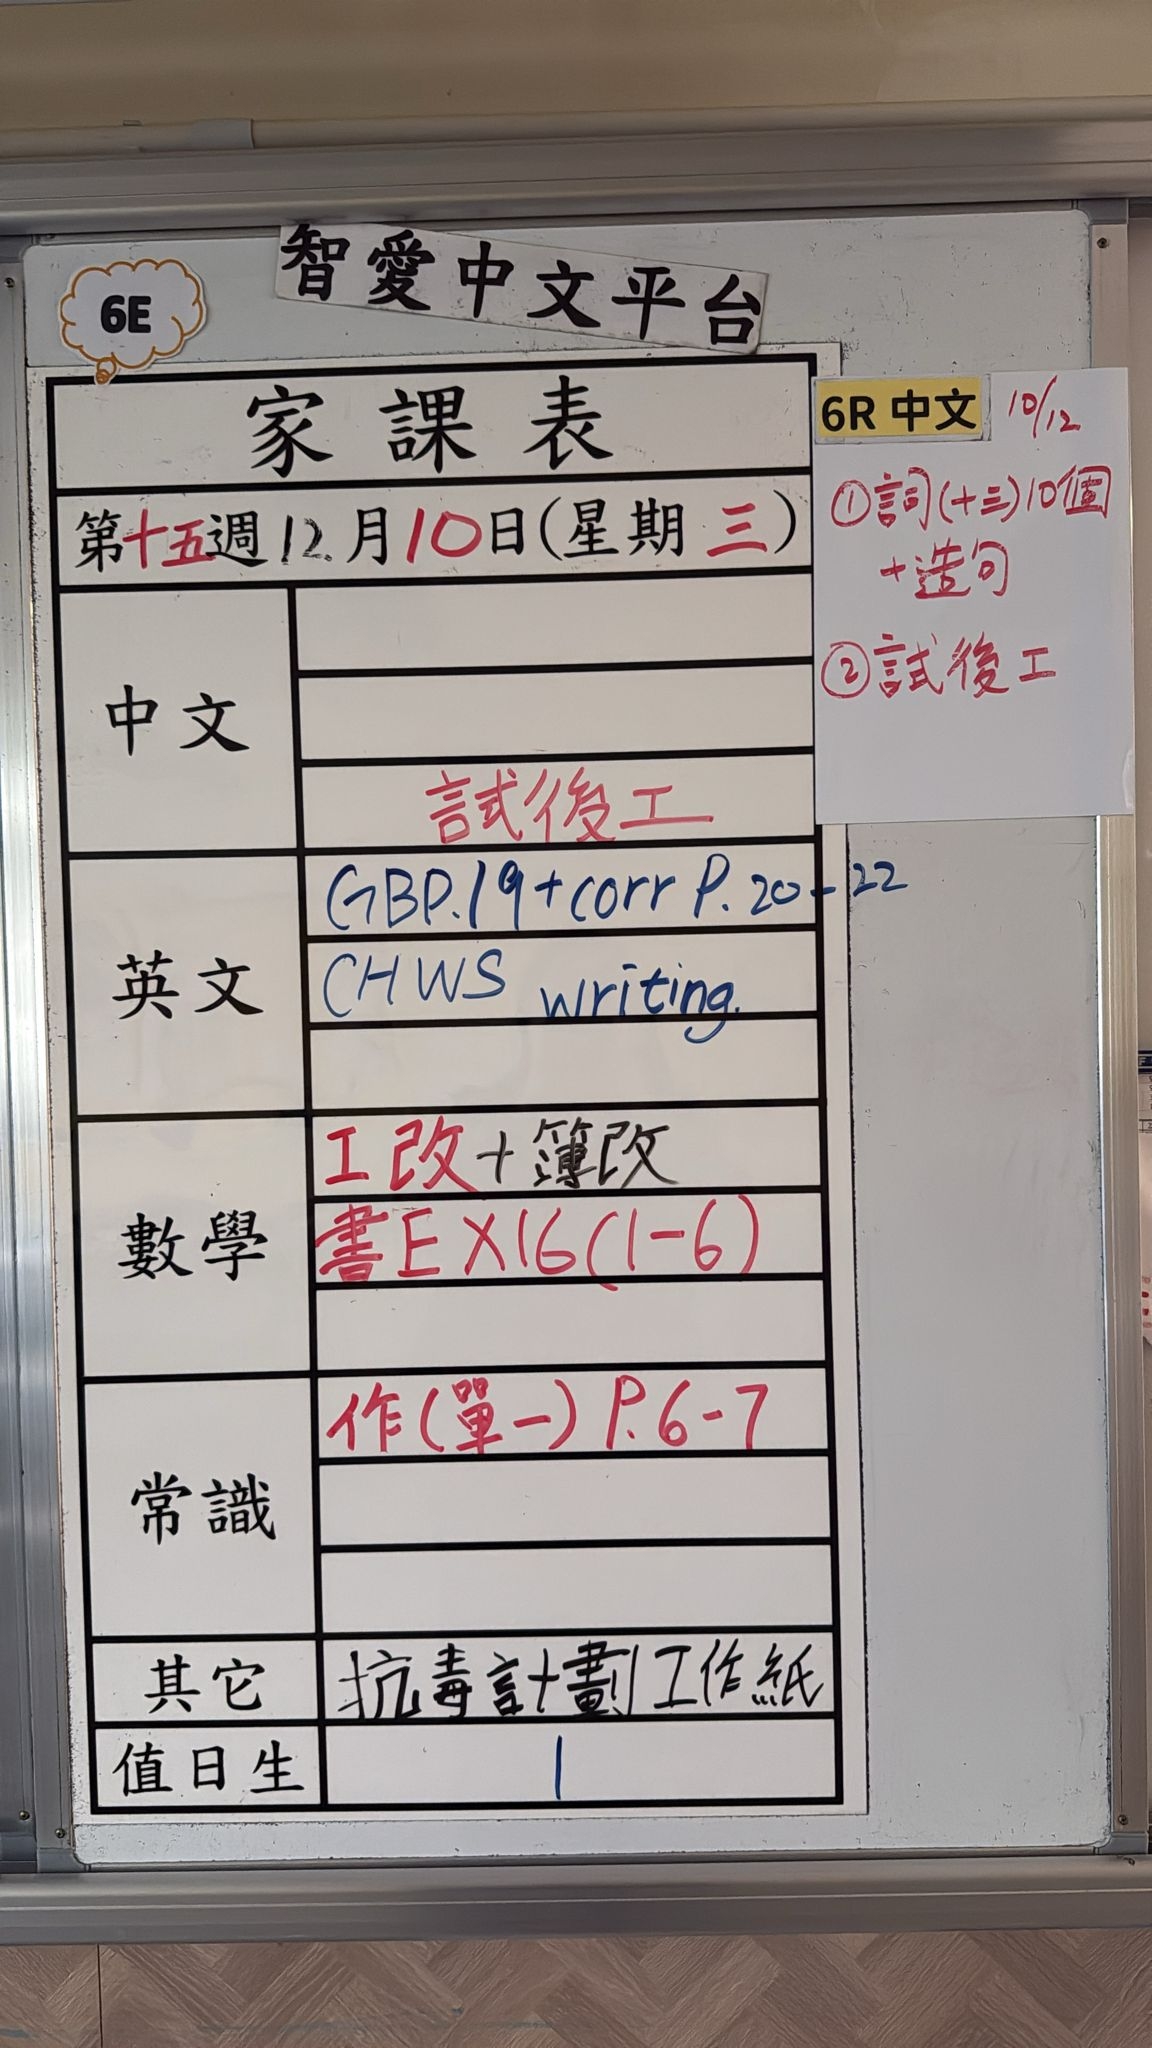 智愛中文平台
6E
家課表
第十五週12月10日(星期三)
中文
試後工
英文
GBP.19+corr P.20-22
CHWS writing.
數學
工改+簿改
書EX16(1-6)
常識
作(單一)P.6-7
其它
抗毒計劃工作紙
值日生
1
6R 中文
10/12
①詞(十三)10個
+造句
②試後工